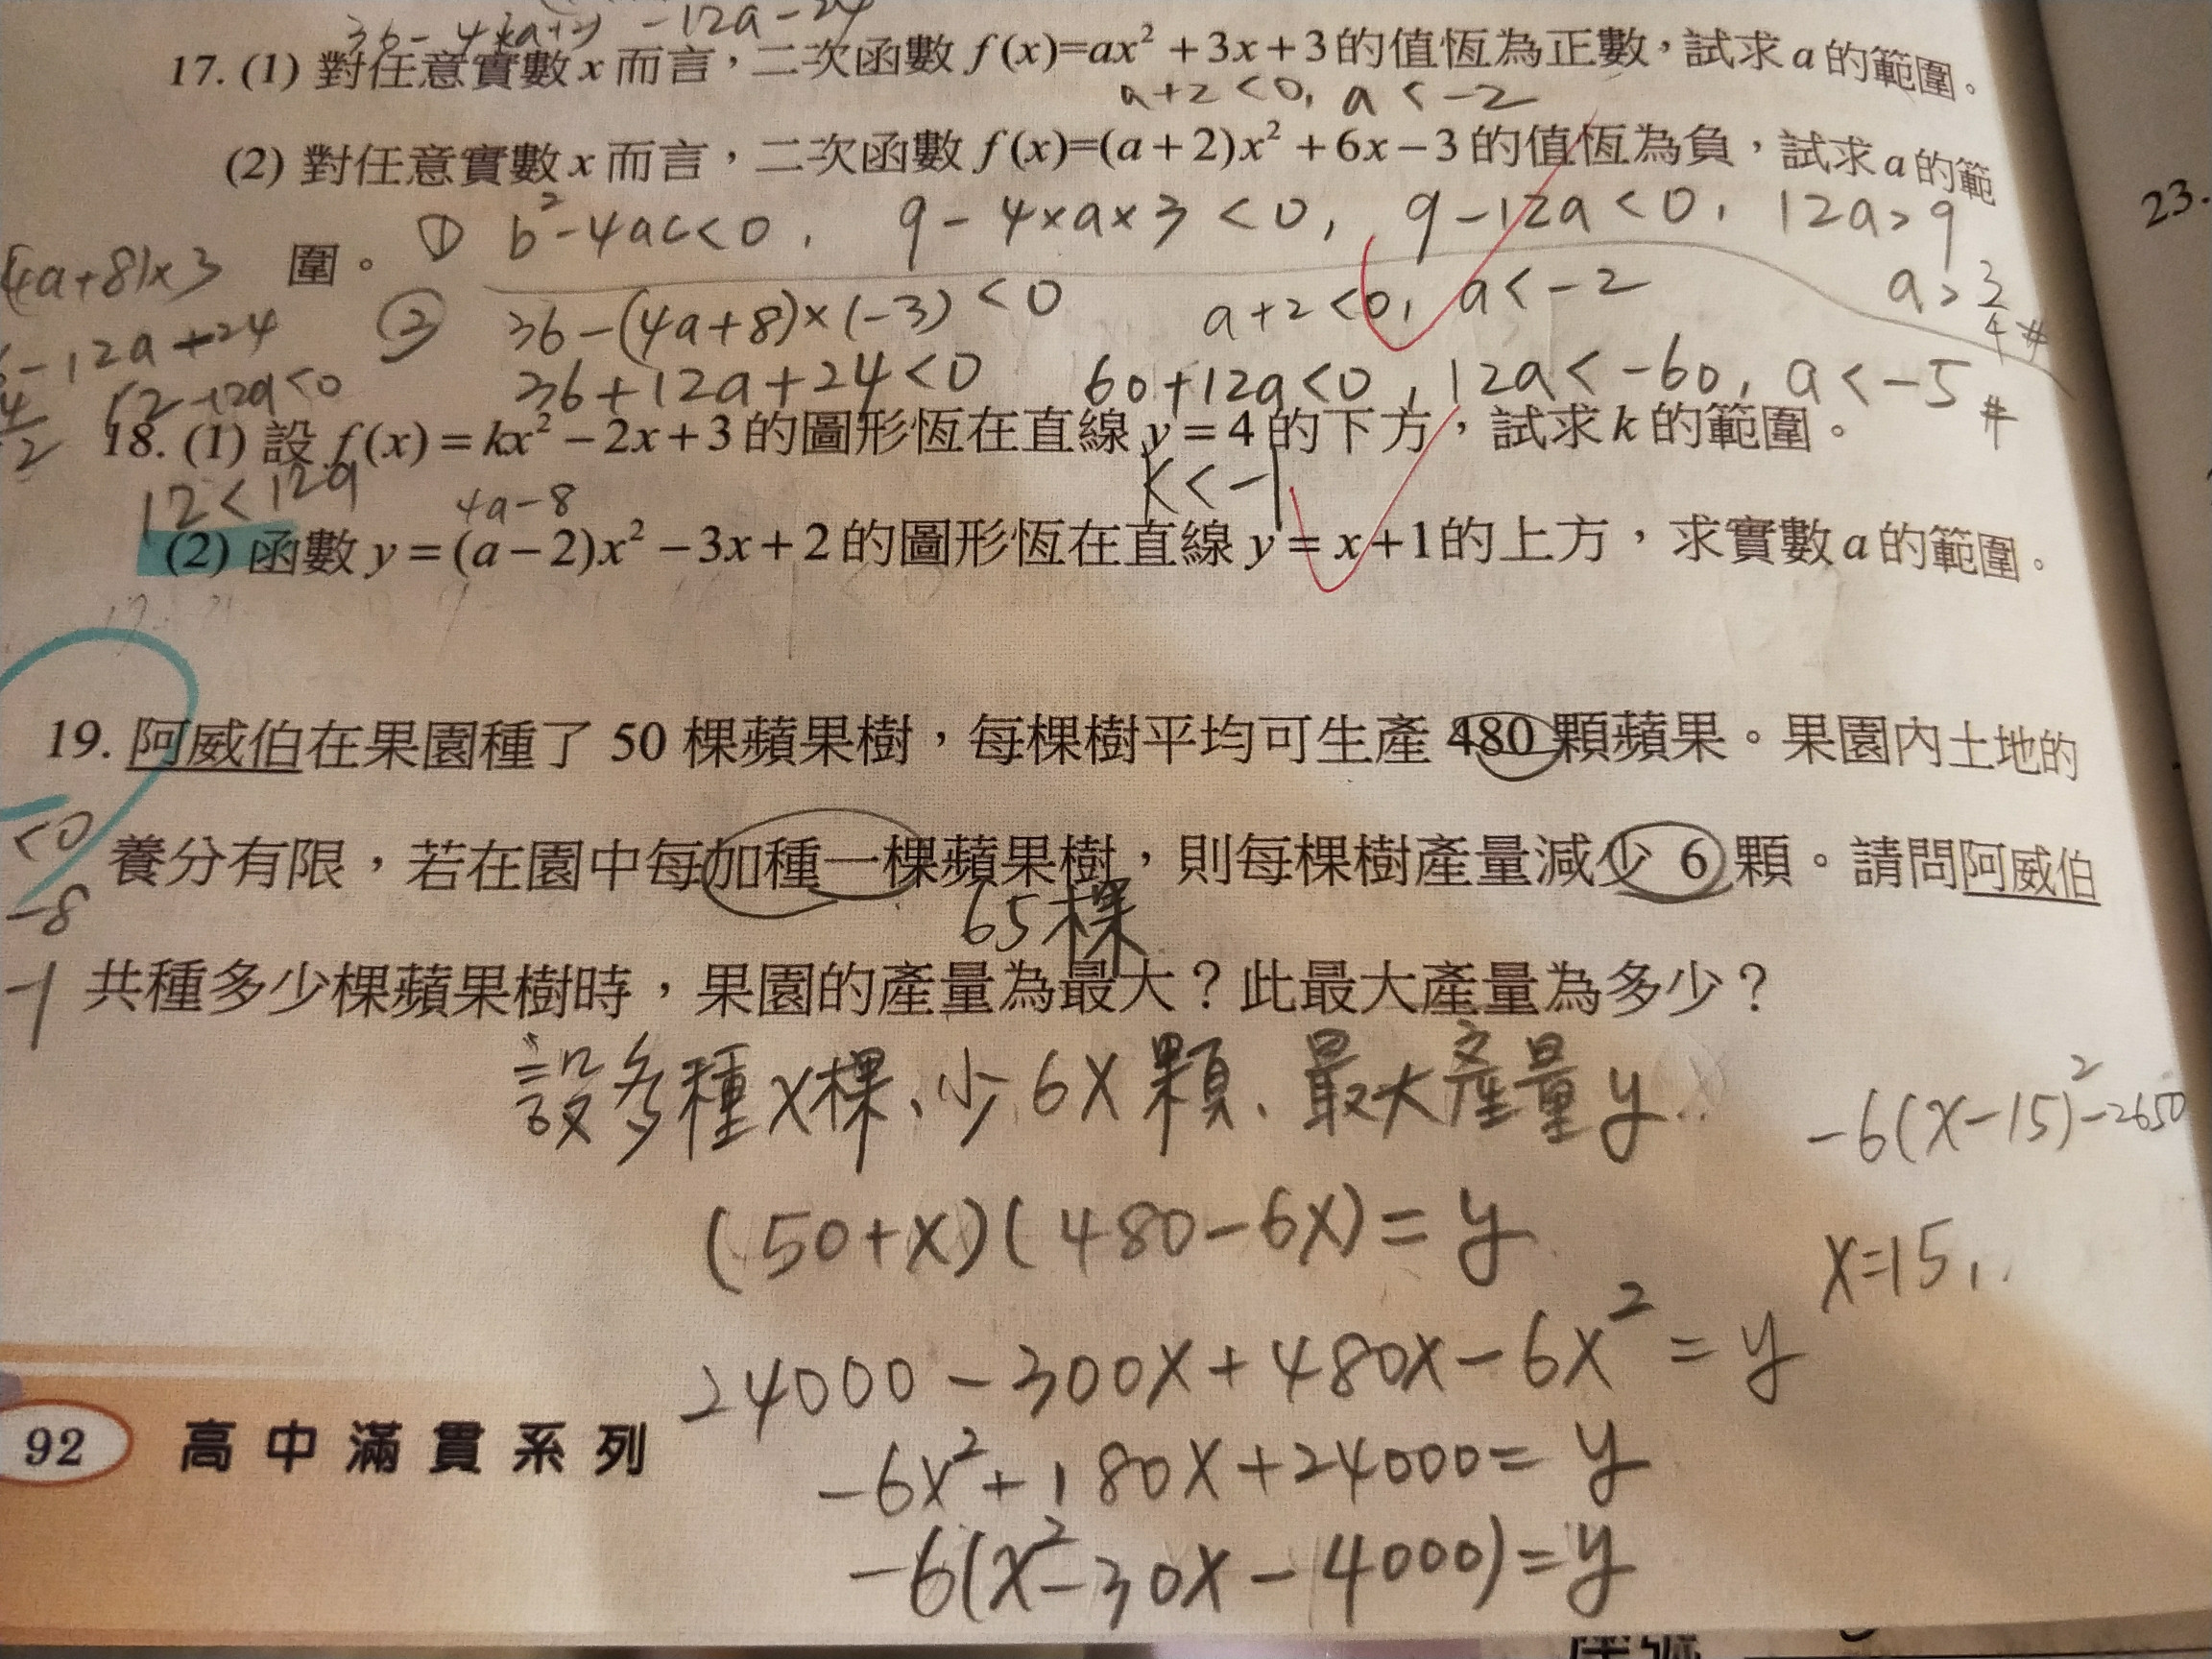 36-4×(a+2) -12a-24
17. (1) 對任意實數 x 而言，二次函數 f(x)=ax²+3x+3 的值恆為正數，試求 a 的範圍。
a+2<0, a<-2
(2) 對任意實數 x 而言，二次函數 f(x)=(a+2)x²+6x-3 的值恆為負，試求 a 的範
① b²-4ac<0, 9-4×a×3<0, 9-12a<0, 12a>9
(4a+8)×3 圍。
a>3/4 #
② 36-(4a+8)×(-3)<0 a+2<0, a<-2
-12a+24
36+12a+24<0 60+12a<0, 12a<-60, a<-5 #
12-12a<0
18. (1) 設 f(x)=kx²-2x+3 的圖形恆在直線 y=4 的下方，試求 k 的範圍。
12<12a
k<-1
4a-8
(2) 函數 y=(a-2)x²-3x+2 的圖形恆在直線 y=x+1 的上方，求實數 a 的範圍。
23.
19. 阿威伯在果園種了 50 棵蘋果樹，每棵樹平均可生產 480 顆蘋果。果園內土地的
<0
養分有限，若在園中每加種一棵蘋果樹，則每棵樹產量減少 6 顆。請問阿威伯
-8
65棵
共種多少棵蘋果樹時，果園的產量為最大？此最大產量為多少？
設多種x棵、少6x顆、最大產量y
-6(x-15)²-2650
(50+x)(480-6x)=y
x=15,
24000-300x+480x-6x²=y
-6x²+180x+24000=y
-6(x²-30x-4000)=y
92 高中滿貫系列